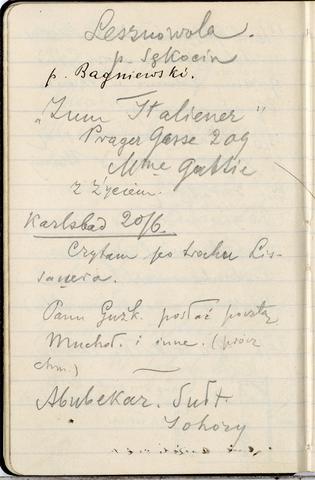 Lesznowola.
p. Sękocin
p. Bagniewski.
"Zum Italiener"
Prager Gasse 209
Mme
z życiem.
Karlsbad 20/6.
Czytam po trochu Lis-
sauera.
Panu Guzk. posłać powstaż
Muchoł. i inne. (prócz
chm.)
Abubekar. Sułt.
Johory